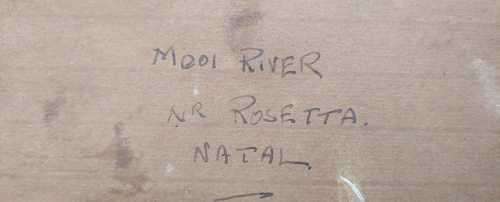 MOOI RIVER
NR ROSETTA.
NATAL.